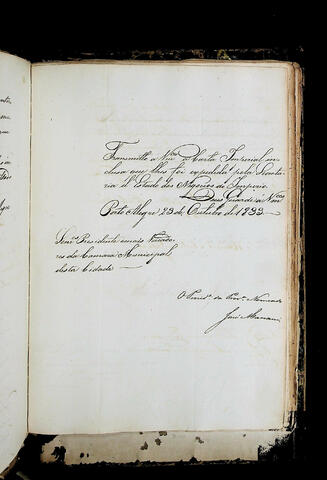 Transmitto a Vmces a Carta Imperial in
clusa que lhes foi expedida pela Secreta
ria d'Estado dos Negocios do Imperio.
Deos Guarde a Vmces
Porto Alegre 23 de Outubro de 1833
Senres Presidente e mais Vereado
res da Camara Municipal
desta Cidade
O Presidte da Provca Nomeado
José Mariani